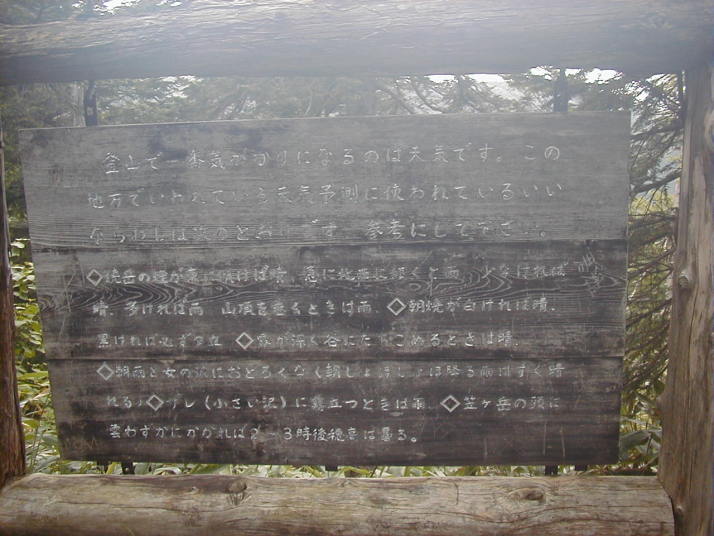 登山で一番気がかりになるのは天気です。この
地方でいわれている天気予測に使われているいい
ならわしは次のとおりです。参考にして下さい。
◇焼岳の煙が 晴、 に 雨、 少なければ
晴、多ければ雨 山頂を きは雨、◇朝焼が白ければ晴、
黒ければ必ず夕立 ◇霧が深く谷にたちこめるときは晴、
◇朝雨と女の におどろくな(朝しょぼしょぼ降る雨はすぐ晴
れる)◇ザレ(小さい沢)に霧立つときは雨、◇笠ヶ岳の頭に
雲わずかにかかれば2~3時後穂高は曇る。